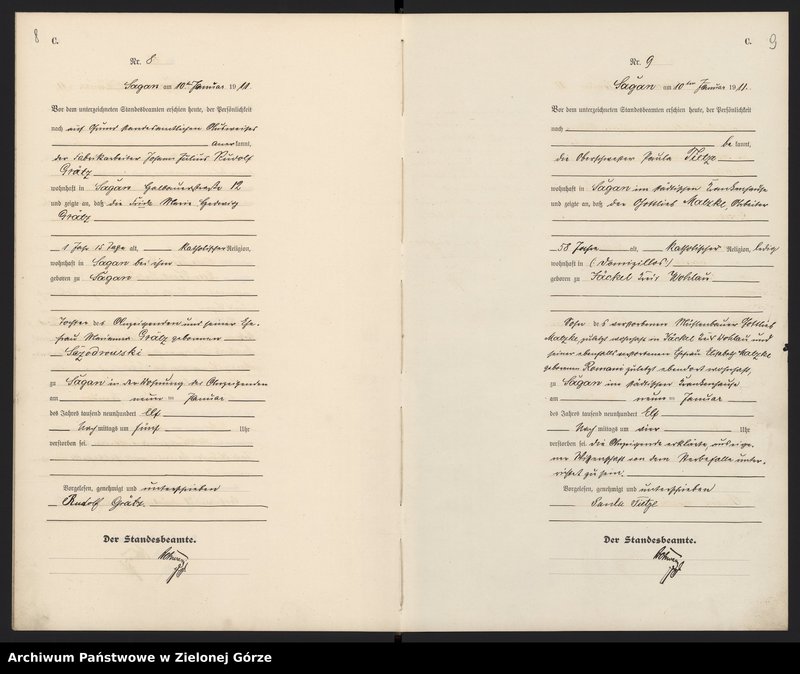 8
C.
Nr. 8
Sagan am 10ten Januar 1911.
Vor dem unterzeichneten Standesbeamten erschien heute, der Persönlichkeit
nach auf Grund standesamtlichen Ausweises
anerkannt,
der Fabrikarbeiter Johann Julius Rudolf
Grätz
wohnhaft in Sagan Halbauerstraße 12
und zeigte an, daß die Frida Maria Hedwig
Grätz
1 Jahr 15 Tage alt, Katholischer Religion,
wohnhaft in Sagan bei ihm
geboren zu Sagan
Tochter des Anzeigenden und seiner Ehe-
frau Marianna Grätz geborenen
zu Sagan in der Wohnung des Anzeigenden
am neunten Januar
des Jahres tausend neunhundert Elf
Nachmittags um fünf Uhr
verstorben sei.
Vorgelesen, genehmigt und unterschrieben
Rudolf Grätz
Der Standesbeamte.
C.
9
Nr. 9
Sagan am 10ten Januar 1911.
Vor dem unterzeichneten Standesbeamten erschien heute, der Persönlichkeit
nach
bekannt,
die Oberschwester Paula Tietze
wohnhaft in Sagan im städtischen Krankenhause
und zeigte an, daß der Gottlieb Matzke, Arbeiter
58 Jahre alt, Katholischer Religion, ledig
wohnhaft in (Domizillos)
geboren zu Jäckel Kreis Wohlau
Sohn des verstorbenen Mühlenbauer Gottlieb
Matzke, zuletzt wohnhaft in Jäckel Kreis Wohlau und
seiner ebenfalls verstorbenen Ehefrau Elisabeth Matzke
geborenen Romani zuletzt ebendort wohnhaft,
zu Sagan im städtischen Krankenhause
am neunten Januar
des Jahres tausend neunhundert Elf
Nachmittags um vier Uhr
verstorben sei. Die Anzeigende erklärte, aus eige-
ner Wissenschaft von dem Sterbefalle unter-
richtet zu sein.
Vorgelesen, genehmigt und unterschrieben
Paula Tietze
Der Standesbeamte.
Archiwum Państwowe w Zielonej Górze